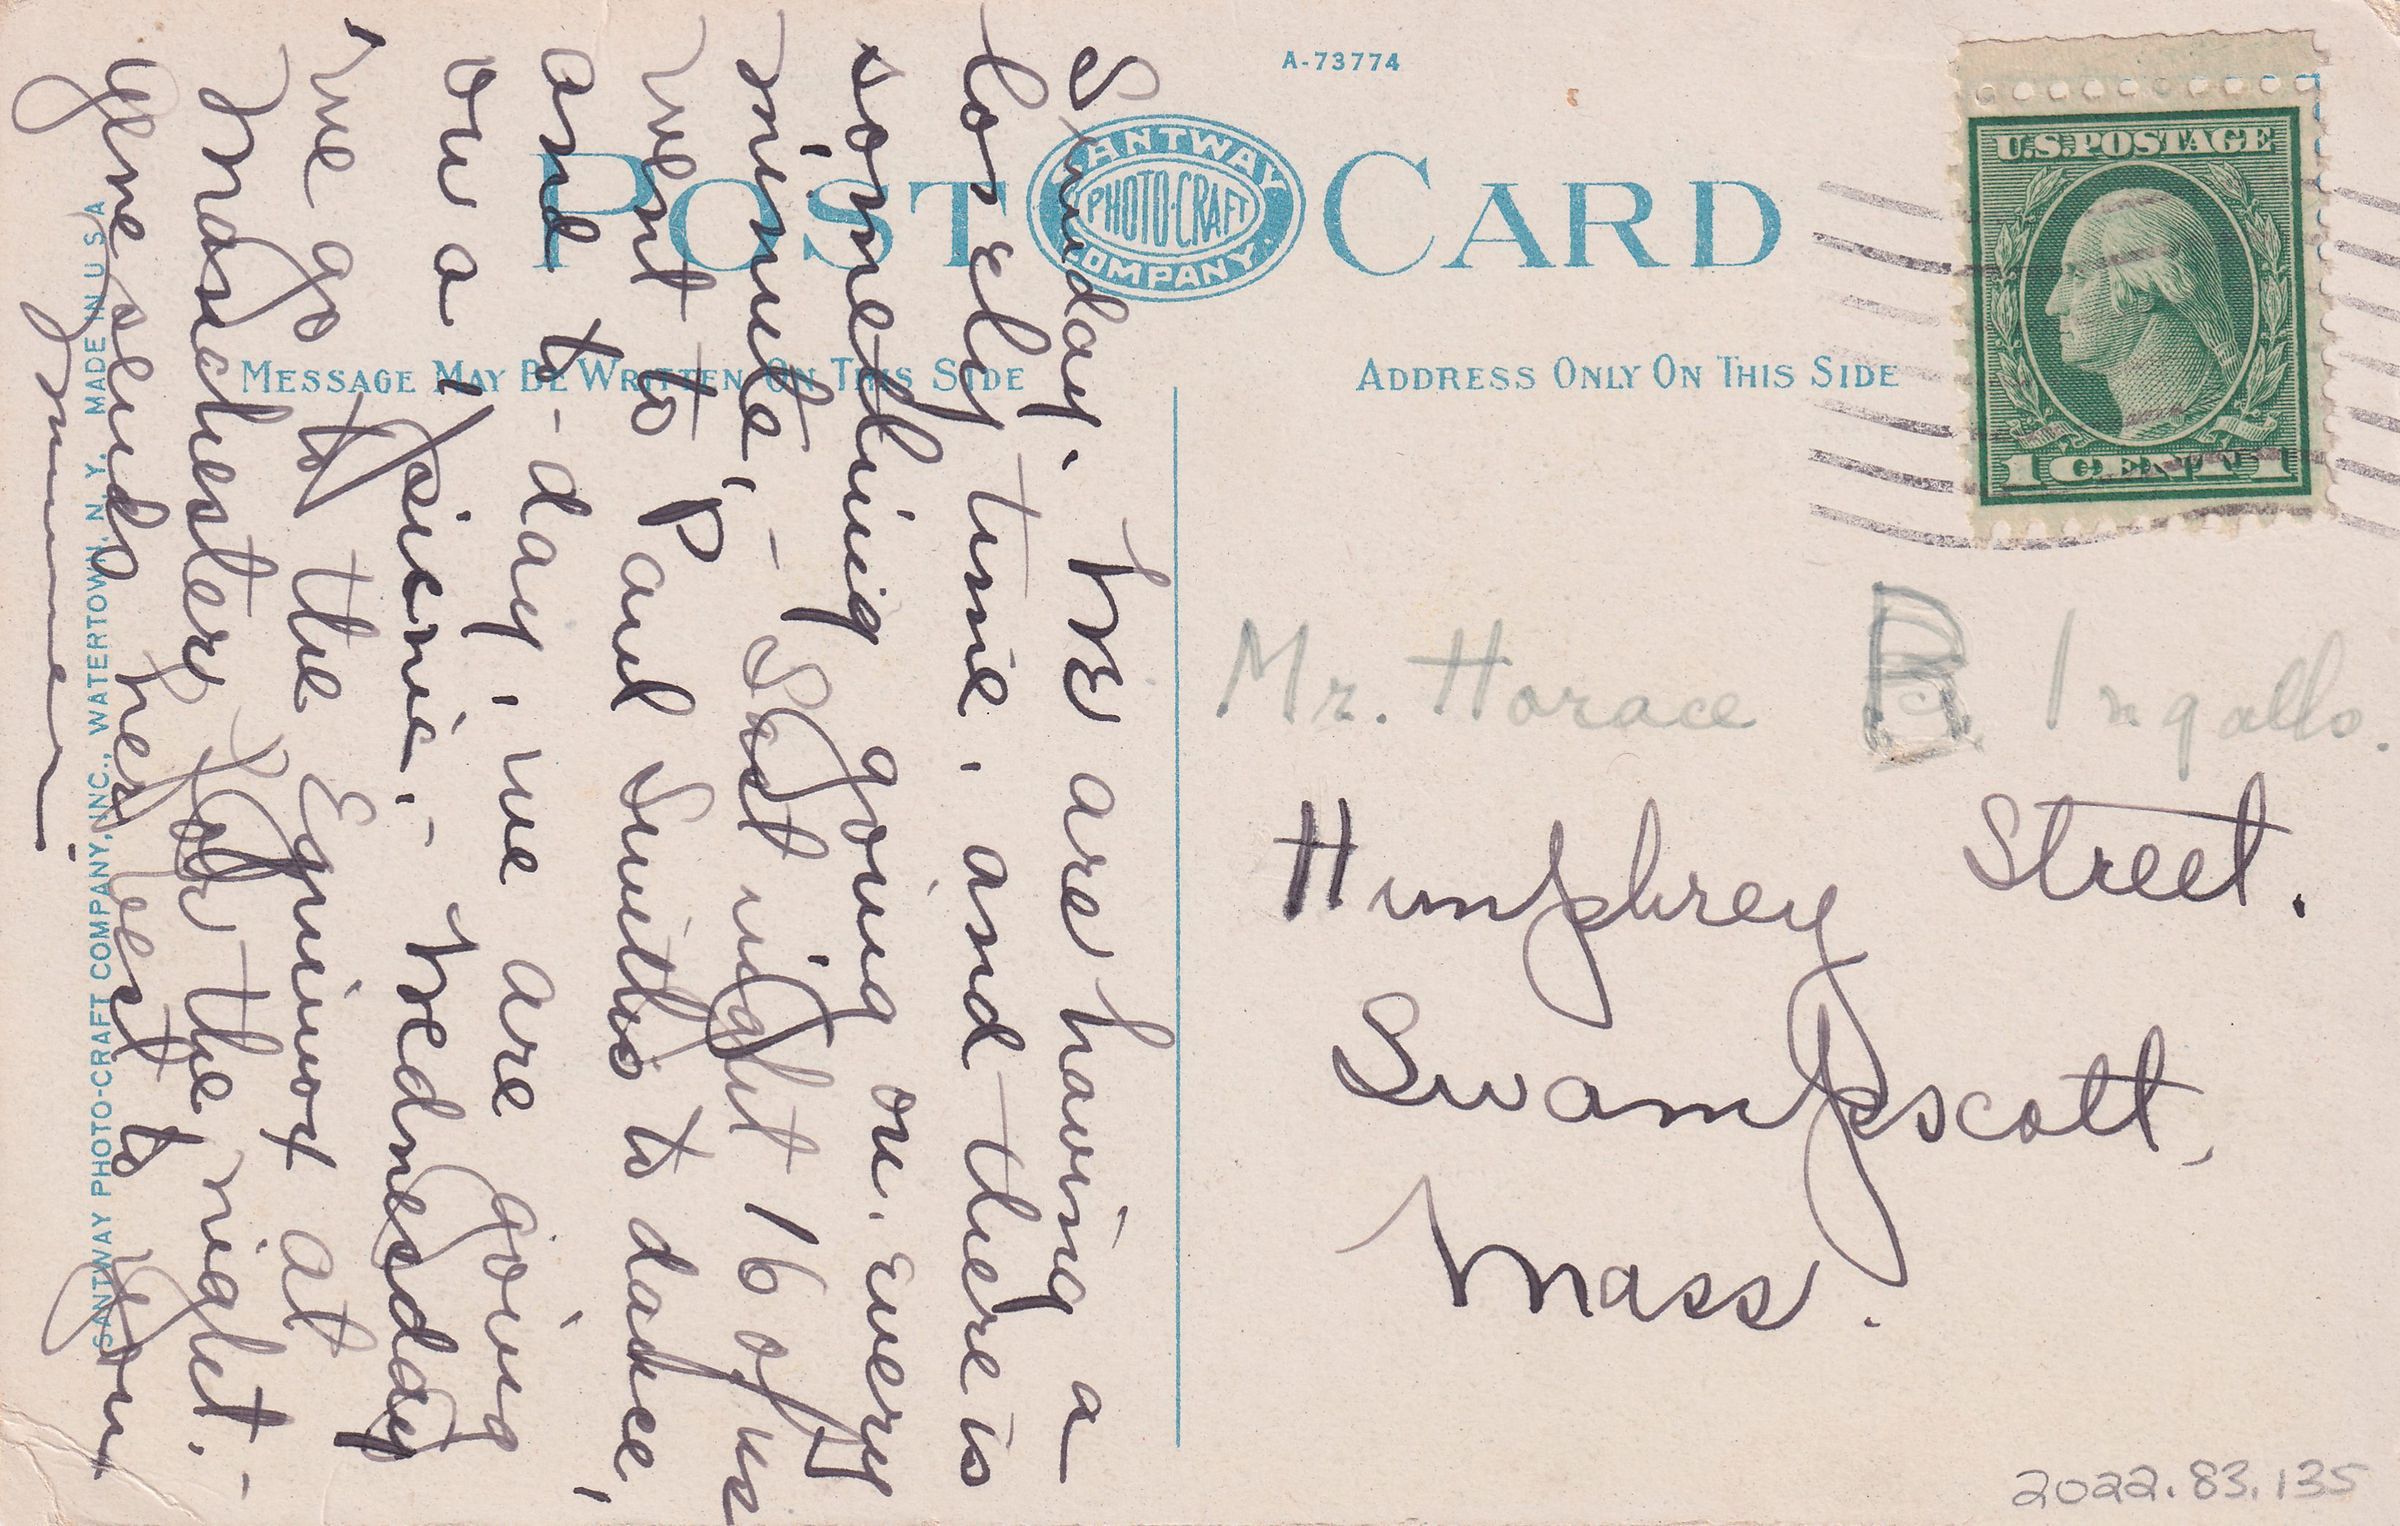 A-73774
POST CARD
SANTWAY PHOTO-CRAFT COMPANY.
MESSAGE MAY BE WRITTEN ON THIS SIDE
ADDRESS ONLY ON THIS SIDE
U.S. POSTAGE
1 CENT 1
Sunday. We are having a
lovely time, and there is
something going on every
minute, - Last night 16 of us
went to Paul Smith's to dance,
and to-day, we are going
on a picnic, - Wednesday
we go to the Equinox at
Manchester for the night. -
Gene sends her best to you
SANTWAY PHOTO-CRAFT COMPANY, INC., WATERTOWN, N. Y. MADE IN U S A
Mr. Horace B. Ingalls.
Humphrey Street.
Swampscott,
Mass.
2022.83.135